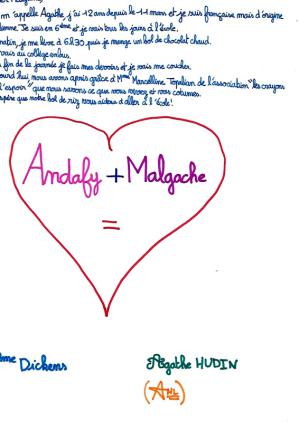 m'appelle Agathe, j'ai 12 ans depuis le 11 mars et je suis française mais d'origine
Je suis en 6ème et je vais tous les jours à l'école,
matin, je me lève à 6h30, puis je mange un bol de chocolat chaud.
vais au collège en bus.
fin de la journée je fais mes devoirs et je vais me coucher.
nous avons appris grâce à Mme Marcelline de l'association "les crayons
l'espoir" que nous savons ce que vous vivez et vos coutumes.
que notre bol de riz vous aidera d'aller à l'école!
Andafy + Malgache
=
Dickens
Agathe HUDIN